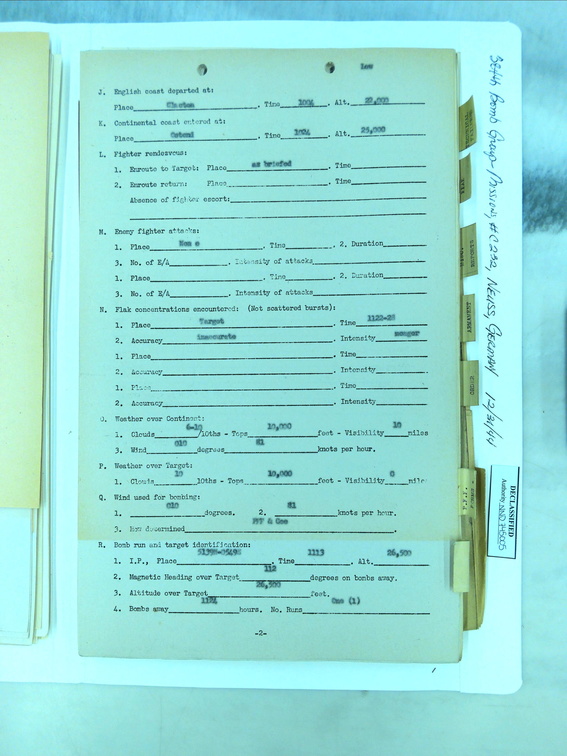 low
J. English coast departed at:
Place Clacton, Time 1004, Alt. 22,000
K. Continental coast entered at:
Place Ostend, Time 1024, Alt. 25,000
L. Fighter rendezvous:
1. Enroute to Target: Place as briefed, Time
2. Enroute return: Place, Time
Absence of fighter escort:
M. Enemy fighter attacks:
1. Place None, Time, 2. Duration
3. No. of E/A. Intensity of attacks
1. Place, Time, 2. Duration
3. No. of E/A. Intensity of attacks
N. Flak concentrations encountered: (Not scattered bursts):
1. Place Target, Time 1122-25
2. Accuracy inaccurate, Intensity meager
1. Place, Time
2. Accuracy, Intensity
1. Place, Time
2. Accuracy, Intensity
O. Weather over Continent:
1. Clouds 6-10/10ths - Tops 10,000 feet - Visibility 10 miles
3. Wind 010 degrees 81 knots per hour.
P. Weather over Target:
1. Clouds 10 10ths - Tops 10,000 feet - Visibility 0 miles
Q. Wind used for bombing:
1. 010 degrees. 2. 81 knots per hour.
3. How determined MF & Gee.
R. Bomb run and target identification:
1. I.P., Place 5139N-0549E, Time 1113, Alt. 26,500
2. Magnetic Heading over Target 112 degrees on bombs away.
3. Altitude over Target 26,500 feet.
4. Bombs away hours. No. Runs One (1)
-2-
Bomb Group Mission, #C232, Neuss, Germany 12/31/44
DECLASSIFIED
Authority NND 745005